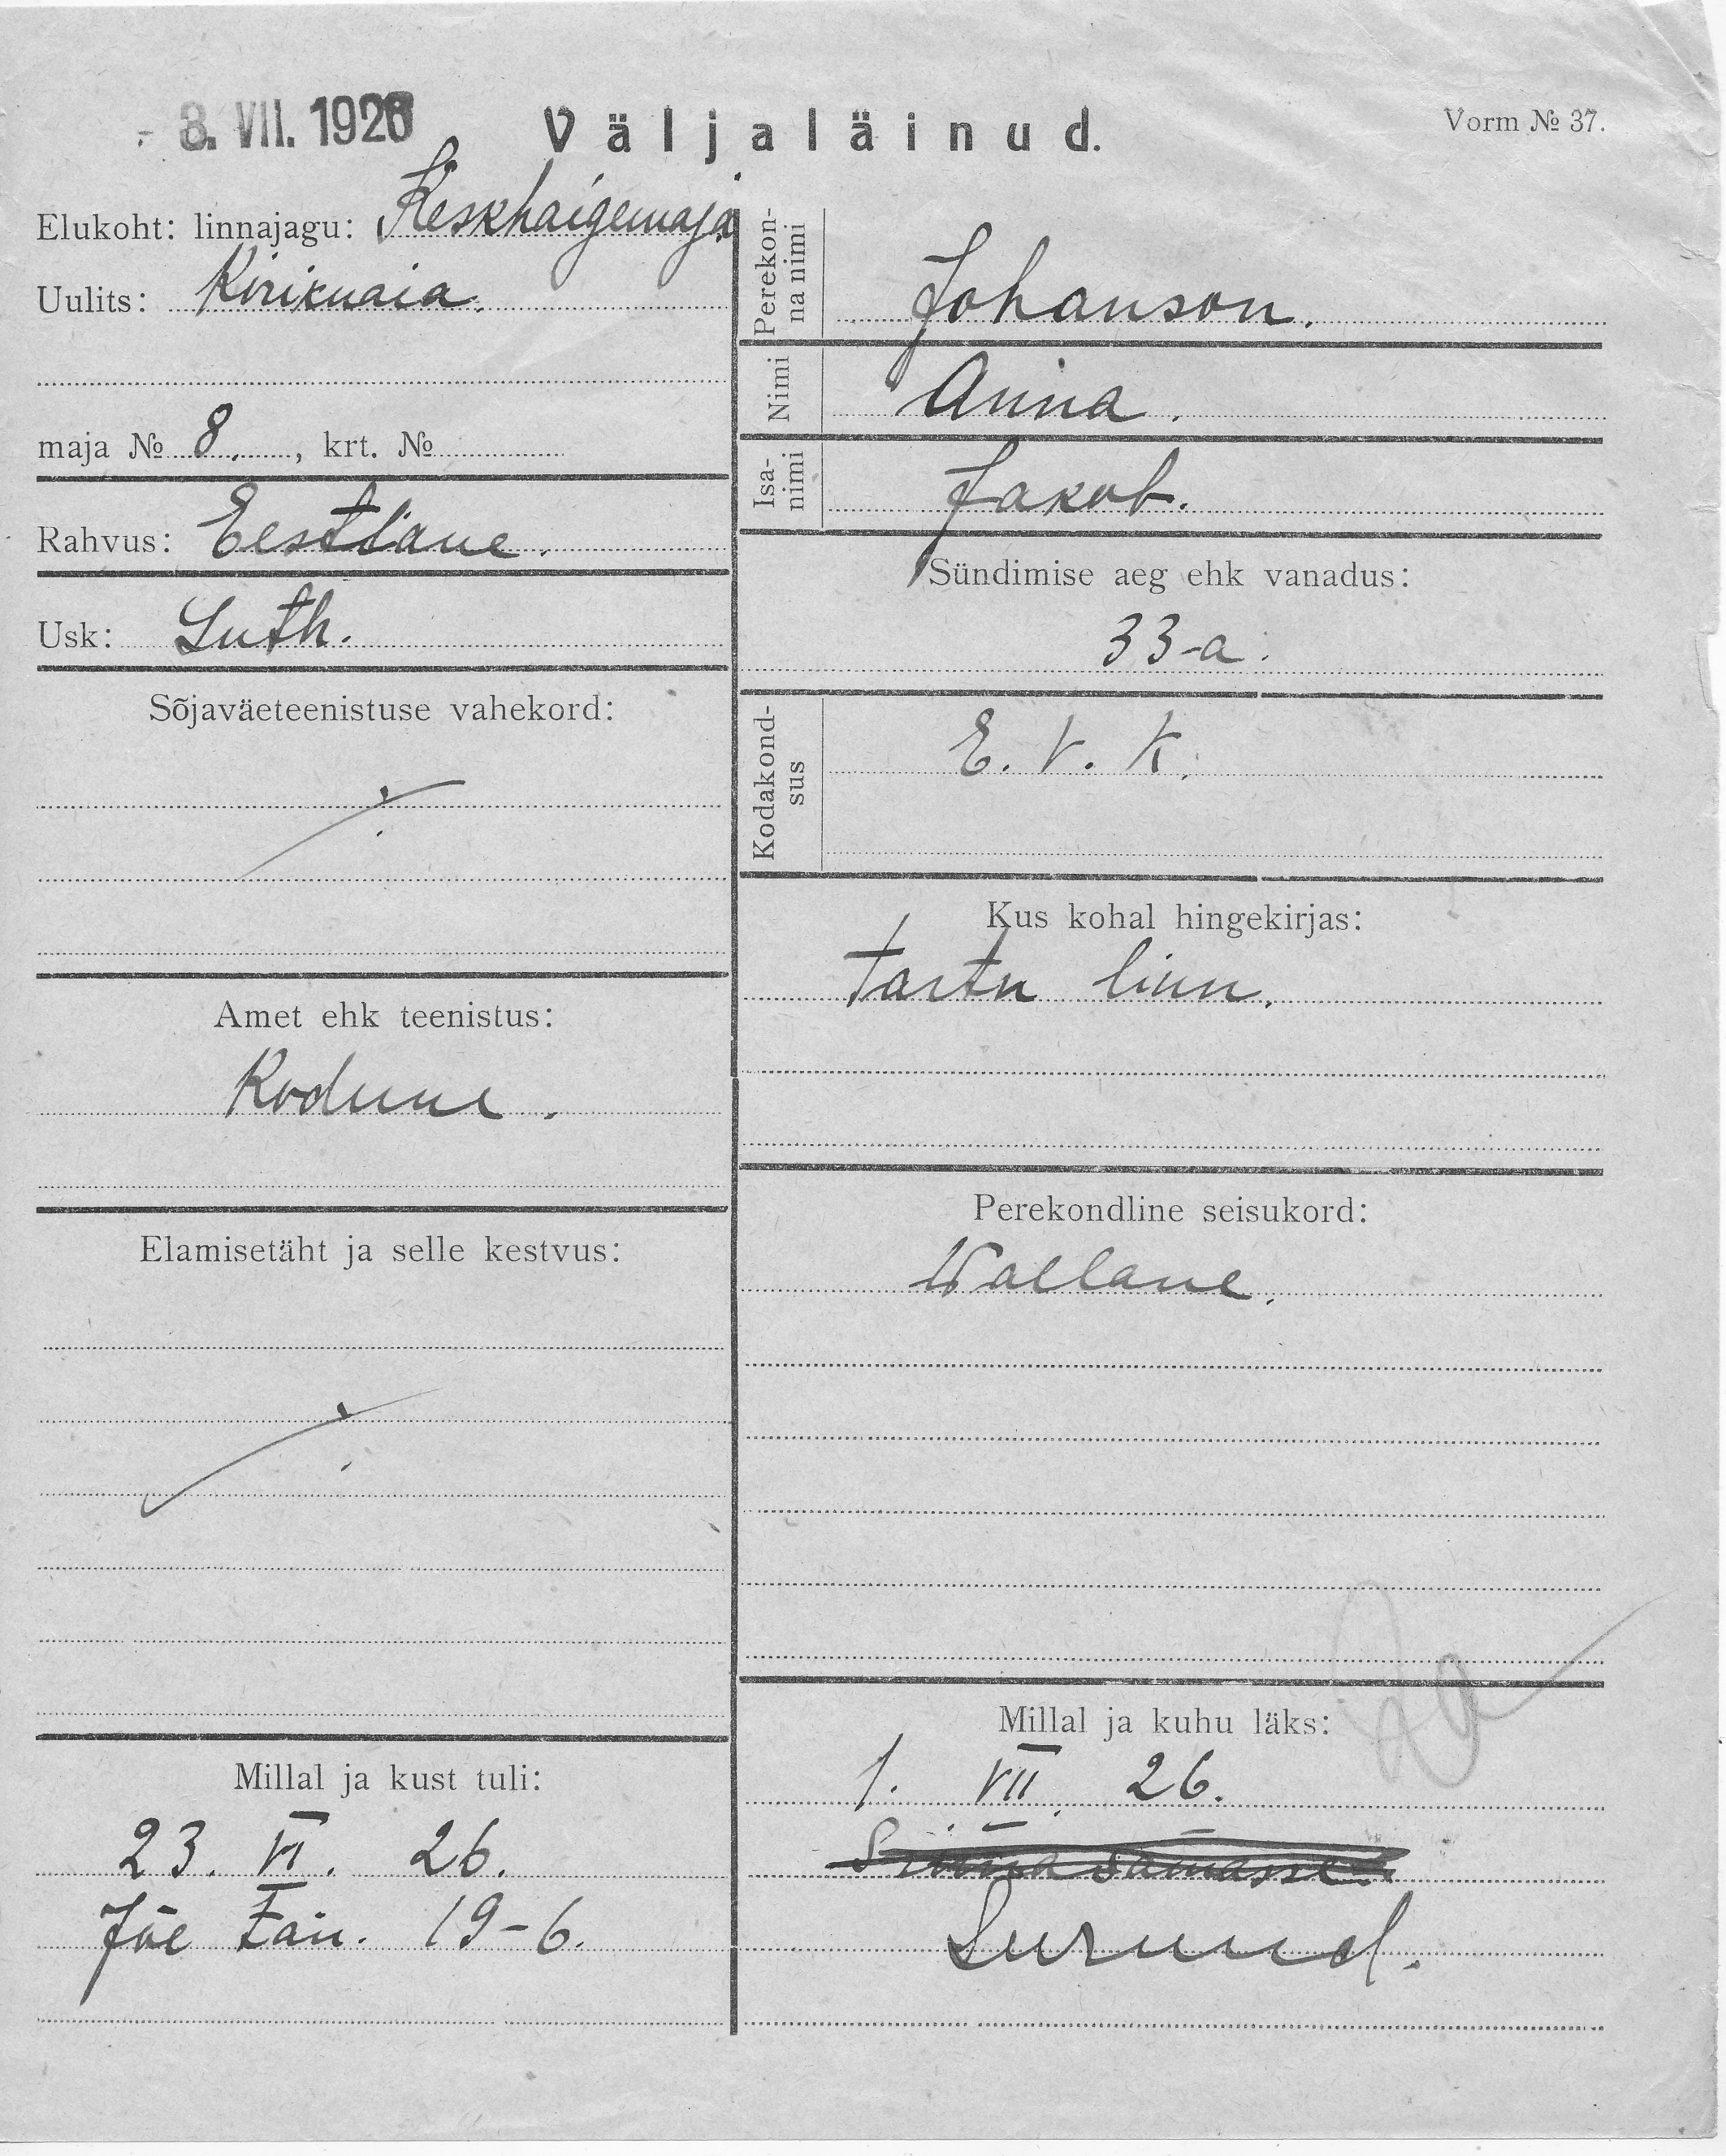 - 8. VII. 1926
Väljaläinud.
Vorm № 37.
Elukoht: linnajagu: Keskhaigemaja
Uulits: Kirikuaia.
maja № 8., krt. №
Rahvus: Eestlane.
Usk: Luth.
Sõjaväeteenistuse vahekord:
Amet ehk teenistus:
Kodune.
Elamisetäht ja selle kestvus:
Millal ja kust tuli:
23. VI. 26.
Jõe tän. 19-6.
Perekon-
na nimi
Johanson.
Nimi
Anna.
Isa-
nimi
Jakob.
Sündimise aeg ehk vanadus:
33-a.
Kodakond-
sus
E. V. K.
Kus kohal hingekirjas:
Tartu linn.
Perekondline seisukord:
Wallane.
Millal ja kuhu läks:
1. VII. 26.
Sinna samasse
Surnud.